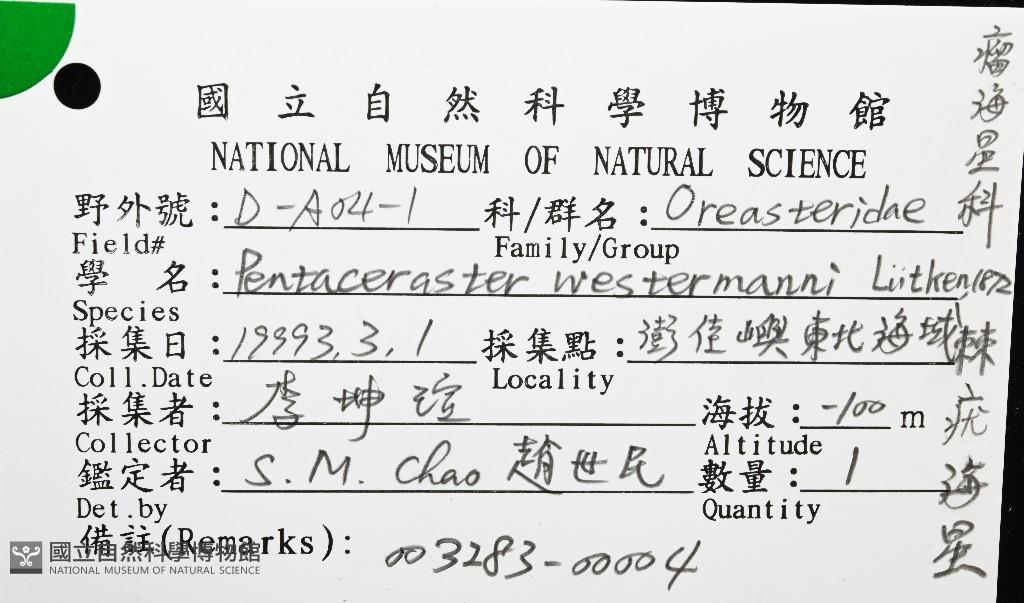 國立自然科學博物館
NATIONAL MUSEUM OF NATURAL SCIENCE
野外號：D-A04-1 科/群名：Oreasteridae 瘤海星科
Field# Family/Group
學名：Pentaceraster westermanni Lütken, 1872
Species
採集日：19993.3.1 採集點：澎佳嶼東北海域
Coll.Date Locality
採集者：李坤瑄 海拔：-100 m
Collector Altitude
鑑定者：S. M. Chao 趙世民 數量：1
Det.by Quantity
棘疣海星
備註(Remarks)：003283-00004
國立自然科學博物館
NATIONAL MUSEUM OF NATURAL SCIENCE